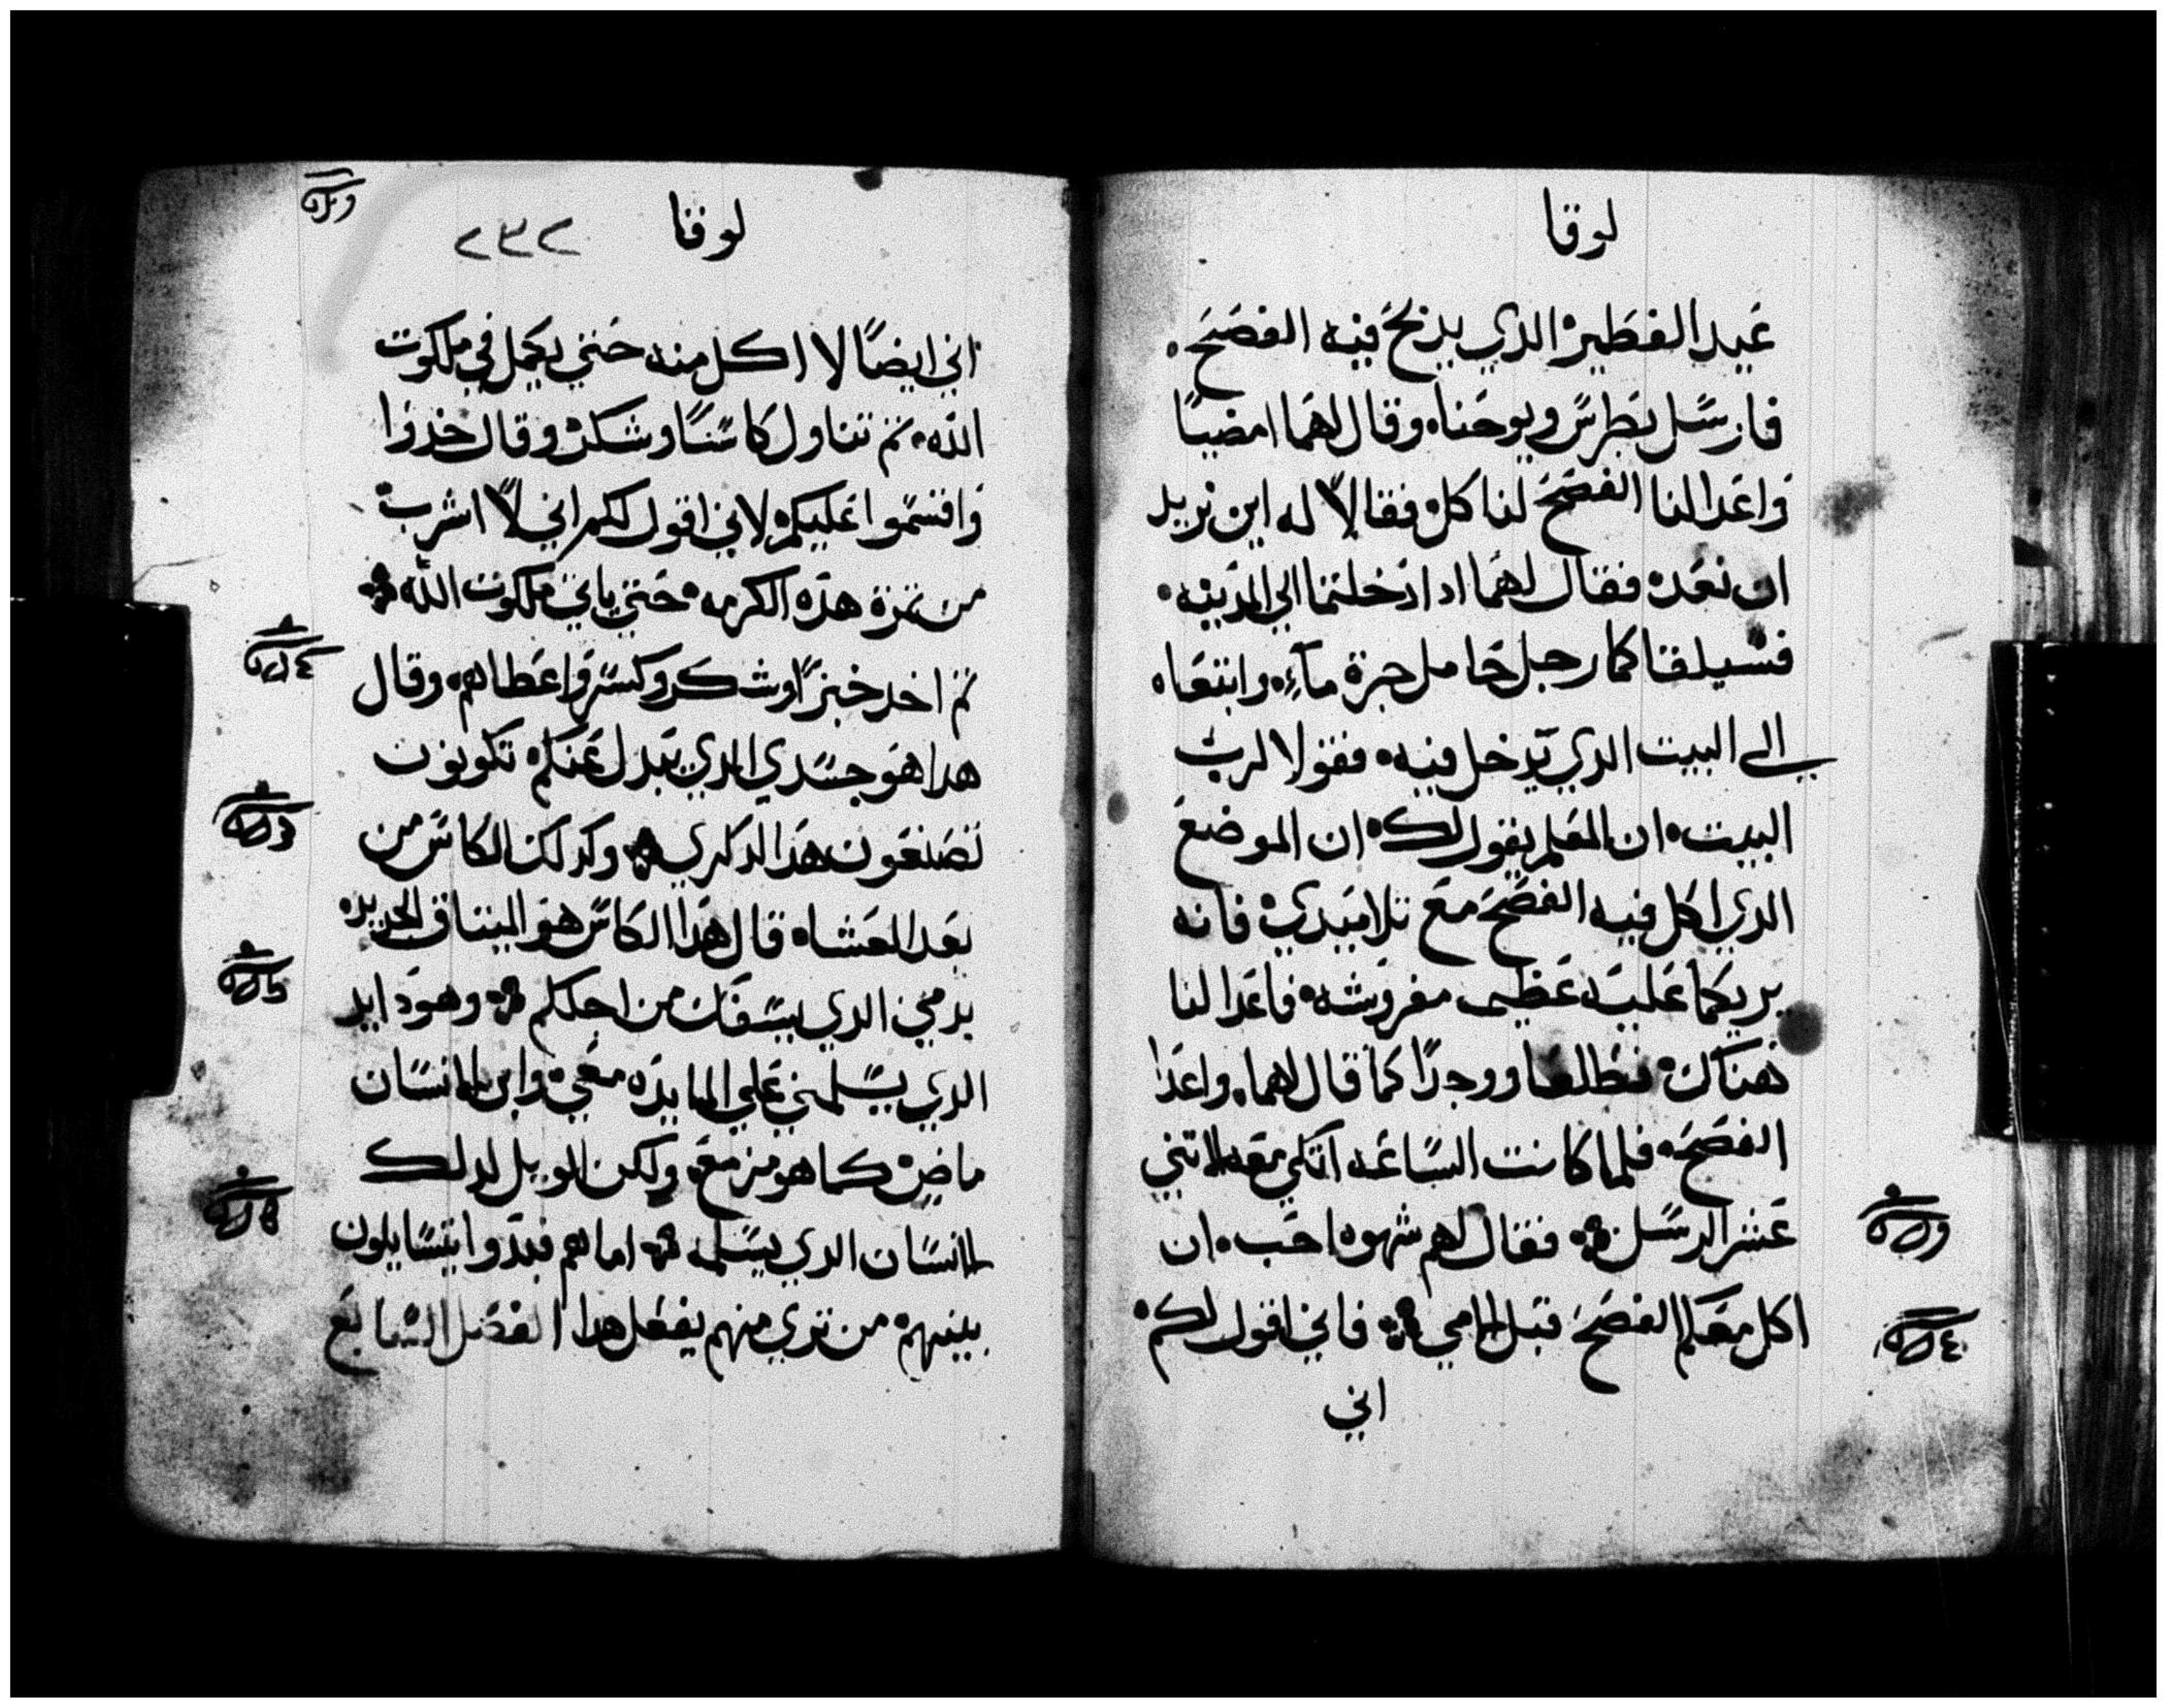 لوقا
عيد الفطير الدي يدبح فيه الفصح.
فارسل بطرس ويوحناه وقال لهما امضيا
واعدا لنا الفصح لناكل فقالا له اين تريد
ان نعده فقال لهما ادا دخلتما الي المدينه.
فسيلقاكما رجل حامل جرة ماء وابتعاه
الى البيت الدي يدخل فيه. فقولا لرب
البيت. ان المعلم يقول لك. ان الموضع
الدي اكل فيه الفصح مع تلاميدي فانه
يريكما عليه عظيمه مفروشه فاعدا لنا
هناك. فنطلقا ووجدا كما قال لهما. واعدا
الفصح. فلما كانت الساعه اتكي معه الاتني
عشر الرسل. فقال لهم شهوه احب. ان
اكل معكم الفصح قبل المي. فاني اقول لكم.
اني
لوقا
٢٣٢
اني ايضًا لا اكل منه حتي يكمل في ملكوت
الله. تم تناول كاسًا وشكر وقال خدوا
واقسموا عليكم. لاني اقول لكم اني لا اشرب
من تمرة هده الكرمه. حتي ياتي ملكوت الله.
تم اخد خبزًا وشكر وكسر واعطاهم. وقال
هدا هو جسدي الدي يبدل عنكم. تكونون
تصنعون هدا لدكري. وكدلك الكاس من
بعد العشاه قال هدا الكاس هو الميتاق الجديد.
بدمي الدي يسفك من اجلكم. وهودا يد
الدي يسلمني علي المايده معي. وابن الانسان
ماضي. كما هو مزمع. ولكن الويل لدلك
الانسان الدي يسلمه. اما هم فبدوا يتسايلون
بينهم. من تري منهم يفعل هدا الفصل السابع